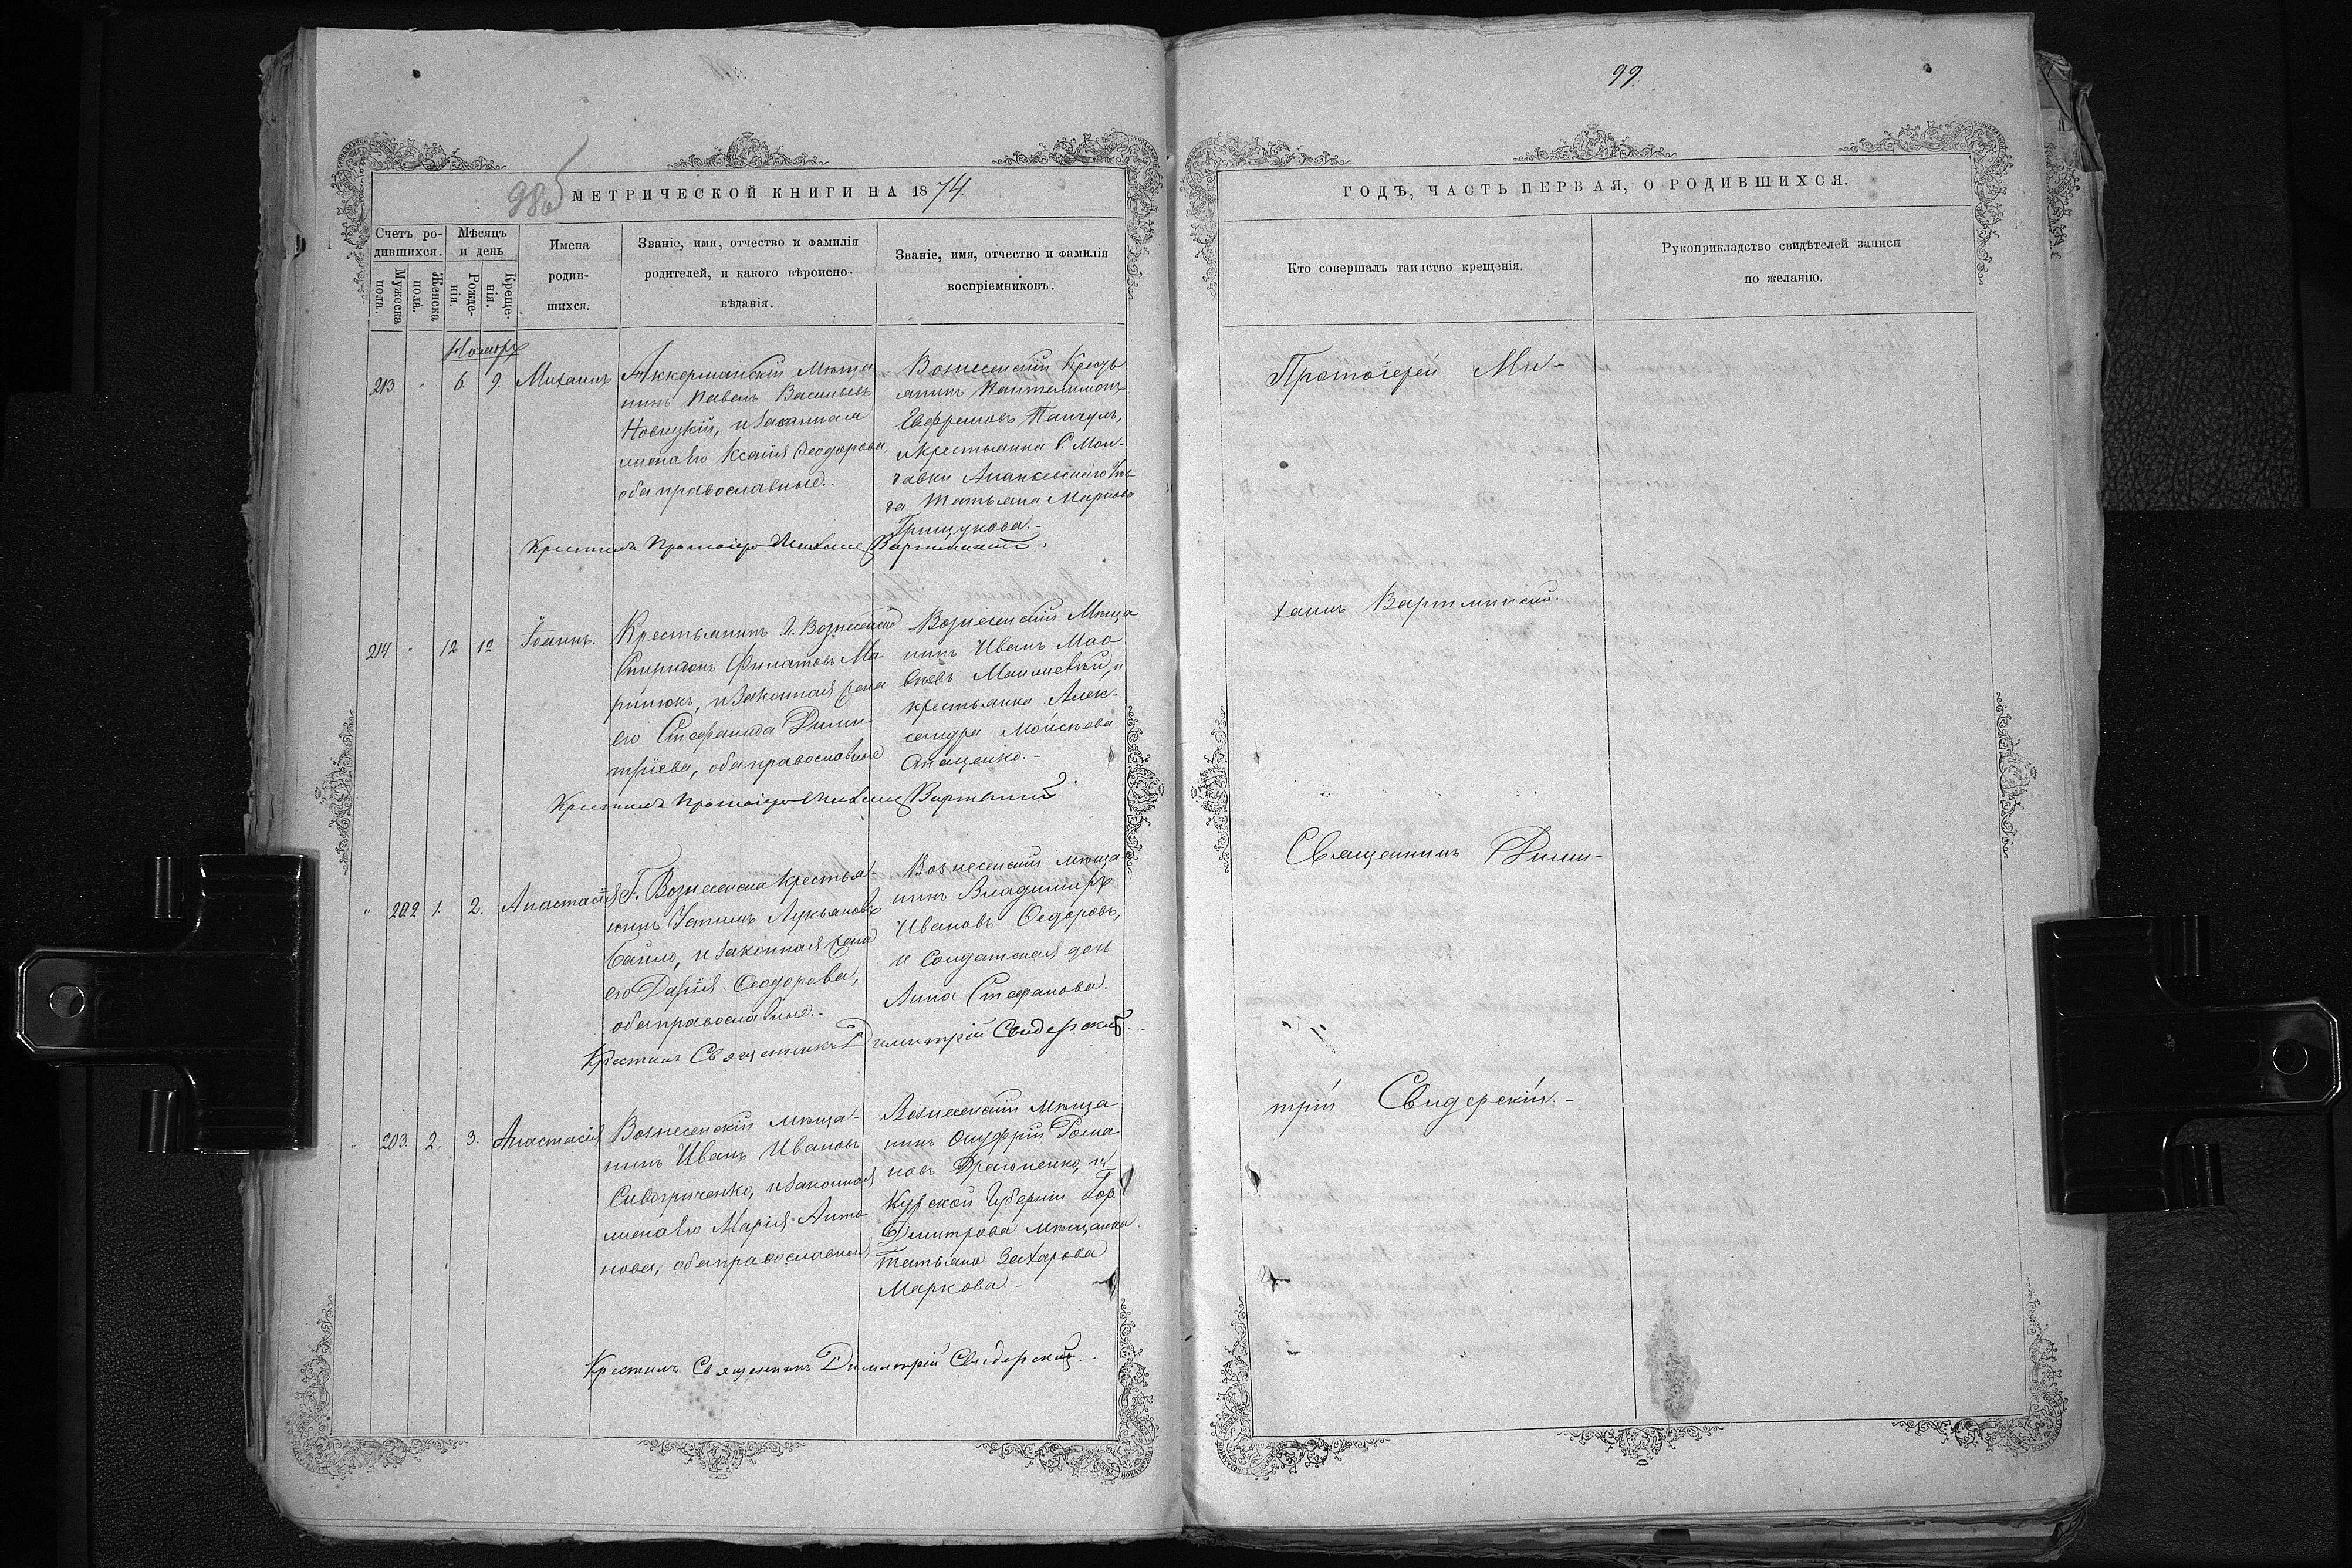 99.
98 об
МЕТРИЧЕСКОЙ КНИГИ НА 1874
Счетъ ро-
дившихся.
Мужеска
пола.
Женска
пола.
Мѣсяцъ
и день
Рожде-
нія.
Креще-
нія.
Имена
родив-
шихся.
Званіе, имя, отчество и фамилія
родителей, и какого вѣроиспо-
вѣданія.
Званіе, имя, отчество и фамилія
воспріемниковъ.
Ноябрь
213 " 6. 9. Михаилъ
Аккерманскій Мѣща
нинъ Павелъ Васильевъ
Новицкій, и законная
жена его Ксенія Ѳеодорова,
оба православные.
Вознесенскій Кресть
янинъ Пантелимонъ
Евфремовъ Панчулъ,
и крестьянка С. Мол-
давки Ананьевскаго Уѣз-
да Татьяна Маркова
Грищукова.-
Крестилъ Протоіерей Михаилъ Вартминскій.
214 " 12 12 Іоаннъ.
Крестьянинъ Г. Вознесенска
Спиридонъ Филатовъ Ма
ринюкъ, и законная жена
его Стефанида Дими-
тріева, оба православные
Вознесенскій Мѣща
нинъ Иванъ
крестьянка Алек-
сандра Моисѣева
Крестилъ Протоіерей Михаилъ Вартминскій
" 202 1. 2. Анастасія
Г. Вознесенска крестья-
нинъ Лукьяновъ
Байло, и законная жена
его Дарія Ѳеодорова,
оба православные.-
Вознесенскій мѣща
нинъ Владимиръ
Ивановъ Ѳедоровъ,
и солдатская дочь
Анна Стефанова.
Крестилъ Священникъ Димитрій Свидерскій.
" 203. 2. 3. Анастасія
Вознесенскій мѣща-
нинъ Иванъ Ивановъ
Сивогриченко, и законная
жена его Марія Анто-
нова, оба православные
Вознесенскій мѣща
нинъ Онуфрій Рома
новъ и
Курской Губерніи Гор.
Дмитрова мѣщанка
Татьяна Захарова
Маркова.-
Крестилъ Священникъ Димитрій Свидерскій.
ГОДЪ, ЧАСТЬ ПЕРВАЯ, О РОДИВШИХСЯ.
Кто совершалъ таинство крещенія.
Рукоприкладство свидѣтелей записи
по желанію.
Протоіерей Ми-
хаилъ Вартминскій.
Священникъ Дими-
трій Свидерскій.-